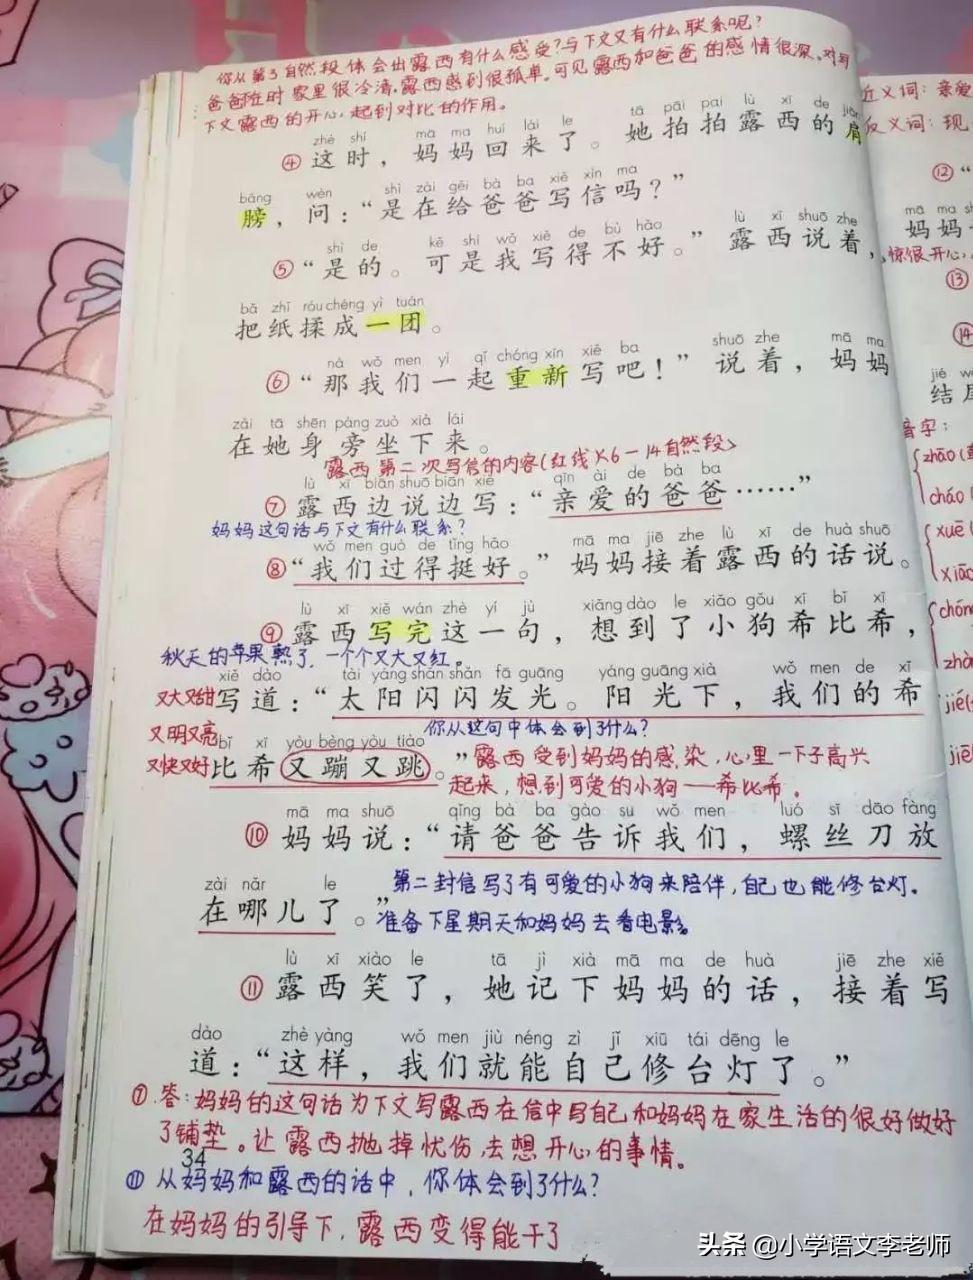 你从第3自然段体会出露西有什么感受?与下文又有什么联系呢?
爸爸在时家里很冷清,露西感到很孤单。可见露西和爸爸的感情很深。对写
下文露西的开心,起到对比的作用。
zhè shí mā ma huí lái le tā pāi pai lù xī de jiān
④这时,妈妈回来了。她拍拍露西的肩
bǎng wèn shì zài gěi bà ba xiě xìn ma
膀,问:“是在给爸爸写信吗?”
shì de kě shì wǒ xiě de bù hǎo lù xī shuō zhe
⑤“是的。可是我写得不好。”露西说着,
bǎ zhǐ róu chéng yì tuán
把纸揉成一团。
nà wǒ men yì qǐ chóng xīn xiě ba shuō zhe mā ma
⑥“那我们一起重新写吧!”说着,妈妈
zài tā shēn páng zuò xià lái
在她身旁坐下来。
露西第二次写信的内容(红线)6-14自然段
lù xī biān shuō biān xiě qīn ài de bà ba
⑦露西边说边写:“亲爱的爸爸……”
妈妈这句话与下文有什么联系?
wǒ men guò de tǐng hǎo mā ma jiē zhe lù xī de huà shuō
⑧“我们过得挺好。”妈妈接着露西的话说。
lù xī xiě wán zhè yí jù xiǎng dào le xiǎo gǒu xī bǐ xī
⑨露西写完这一句,想到了小狗希比希,
秋天的苹果熟了,一个个又大又红。
xiě dào tài yáng shǎn shǎn fā guāng yáng guāng xià wǒ men de xī
又大又甜 写道:“太阳闪闪发光。阳光下,我们的希
又明又亮 你从这句中体会到了什么?
bǐ xī yòu bèng yòu tiào
又快又好 比希又蹦又跳。”露西受到妈妈的感染,心里一下子高兴
起来,想到可爱的小狗——希比希。
mā ma shuō qǐng bà ba gào su wǒ men luó sī dāo fàng
⑩妈妈说:“请爸爸告诉我们,螺丝刀放
zài nǎr le
在哪儿了。”
第二封信写了有可爱的小狗来陪伴,自己也能修台灯。
准备下星期天和妈妈去看电影。
lù xī xiào le tā jì xià mā ma de huà jiē zhe xiě
⑪露西笑了,她记下妈妈的话,接着写
dào zhè yàng wǒ men jiù néng zì jǐ xiū tái dēng le
道:“这样,我们就能自己修台灯了。”
⑦.答:妈妈的这句话为下文写露西在信中写自己和妈妈在家生活的很好做好
了铺垫。让露西抛掉忧伤,去想开心的事情。
34
⑪从妈妈和露西的话中,你体会到了什么?
在妈妈的引导下,露西变得能干了
近义词:亲爱
反义词:现
⑫“
mā ma
妈妈
惊很开心,
⑬
⑭
jié
结尾
音字:
zhāo(
cháo
xuē
xiāo
chóng
zhòng
jiē
jiē
头条 @小学语文李老师